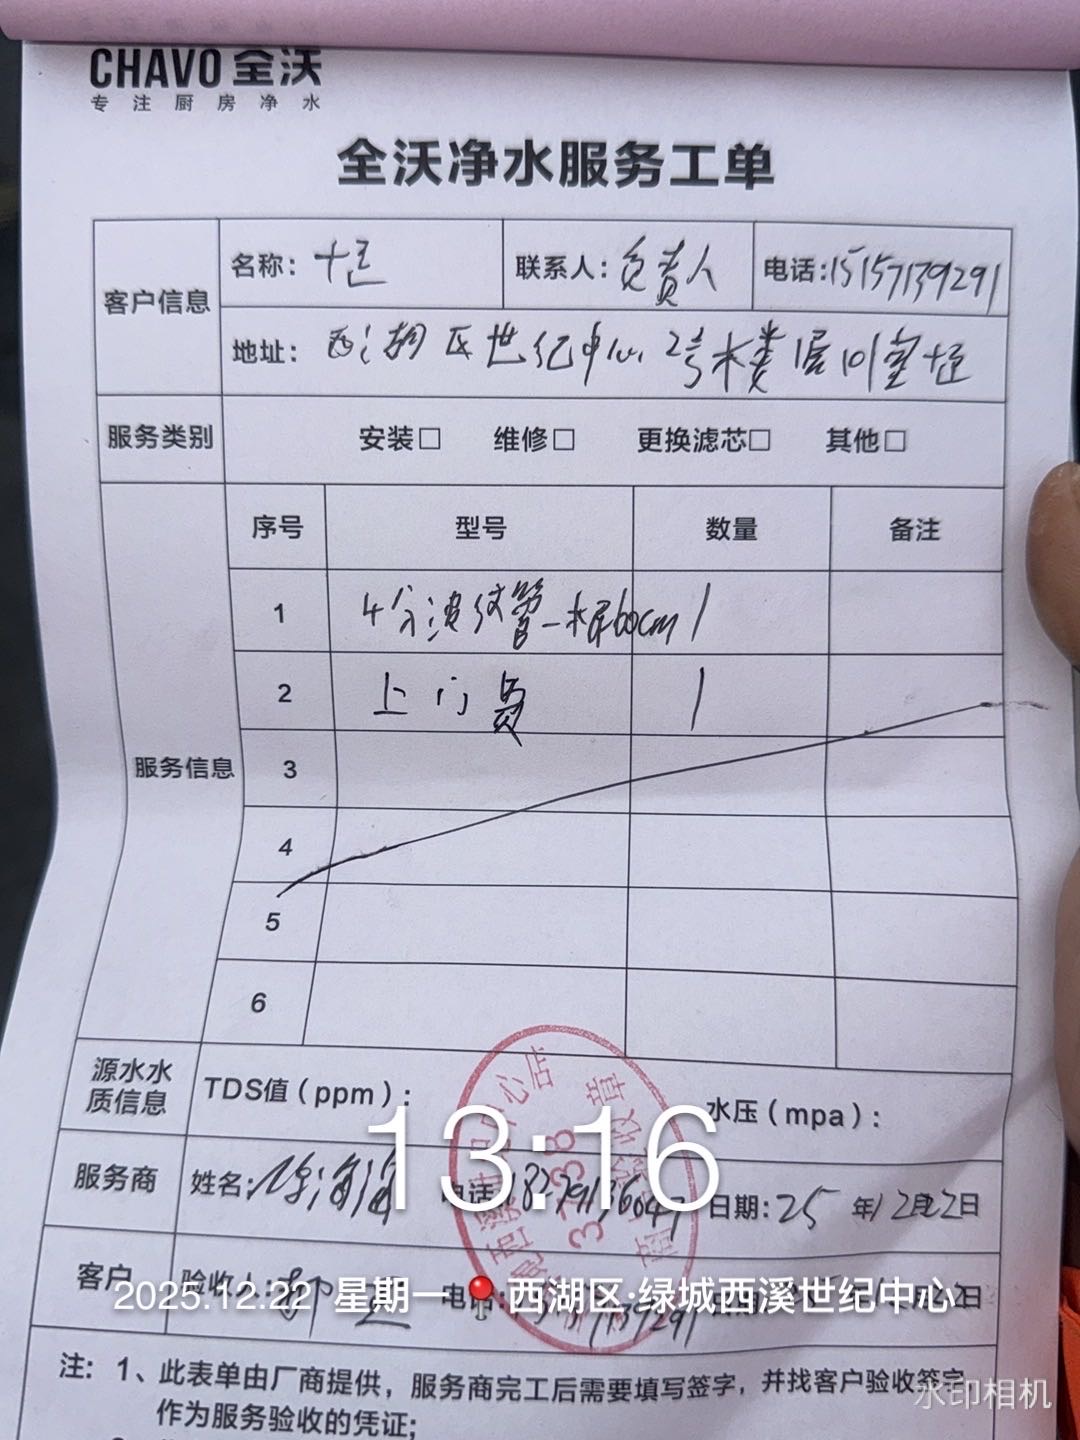 CHAVO 全沃
专注厨房净水
全沃净水服务工单
客户信息
名称：
联系人：负责人
电话：15157139291
地址：西湖区世纪中心2号楼1层101室
服务类别
安装□ 维修□ 更换滤芯□ 其他□
服务信息
序号 型号 数量 备注
1 4分波纹管-水尾60cm 1
2 上门费 1
3
4
5
6
源水水质信息
TDS值（ppm）：
水压（mpa）：
13:16
服务商
姓名：
电话：
日期：25年12月22日
客户
验收人：
2025.12.22 星期一 西湖区·绿城西溪世纪中心
3738
注：1、此表单由厂商提供，服务商完工后需要填写签字，并找客户验收签字
作为服务验收的凭证；
水印相机